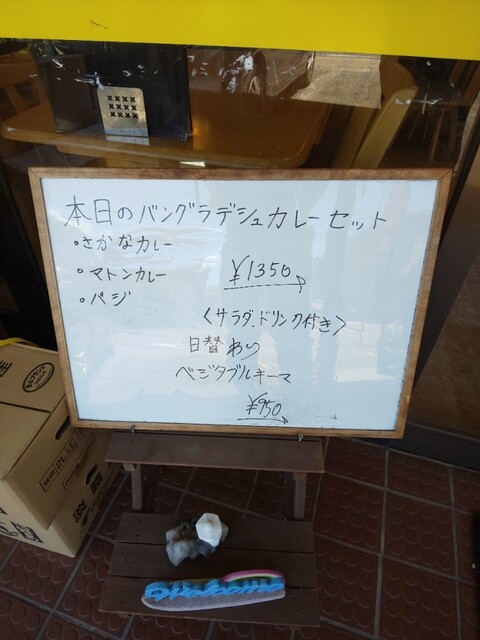 本日のバングラデシュカレーセット
・さかなカレー
・マトンカレー
・バジ
¥1350
<サラダ、ドリンク付き>
日替わり
ベジタブルキーマ
¥950
Welcome